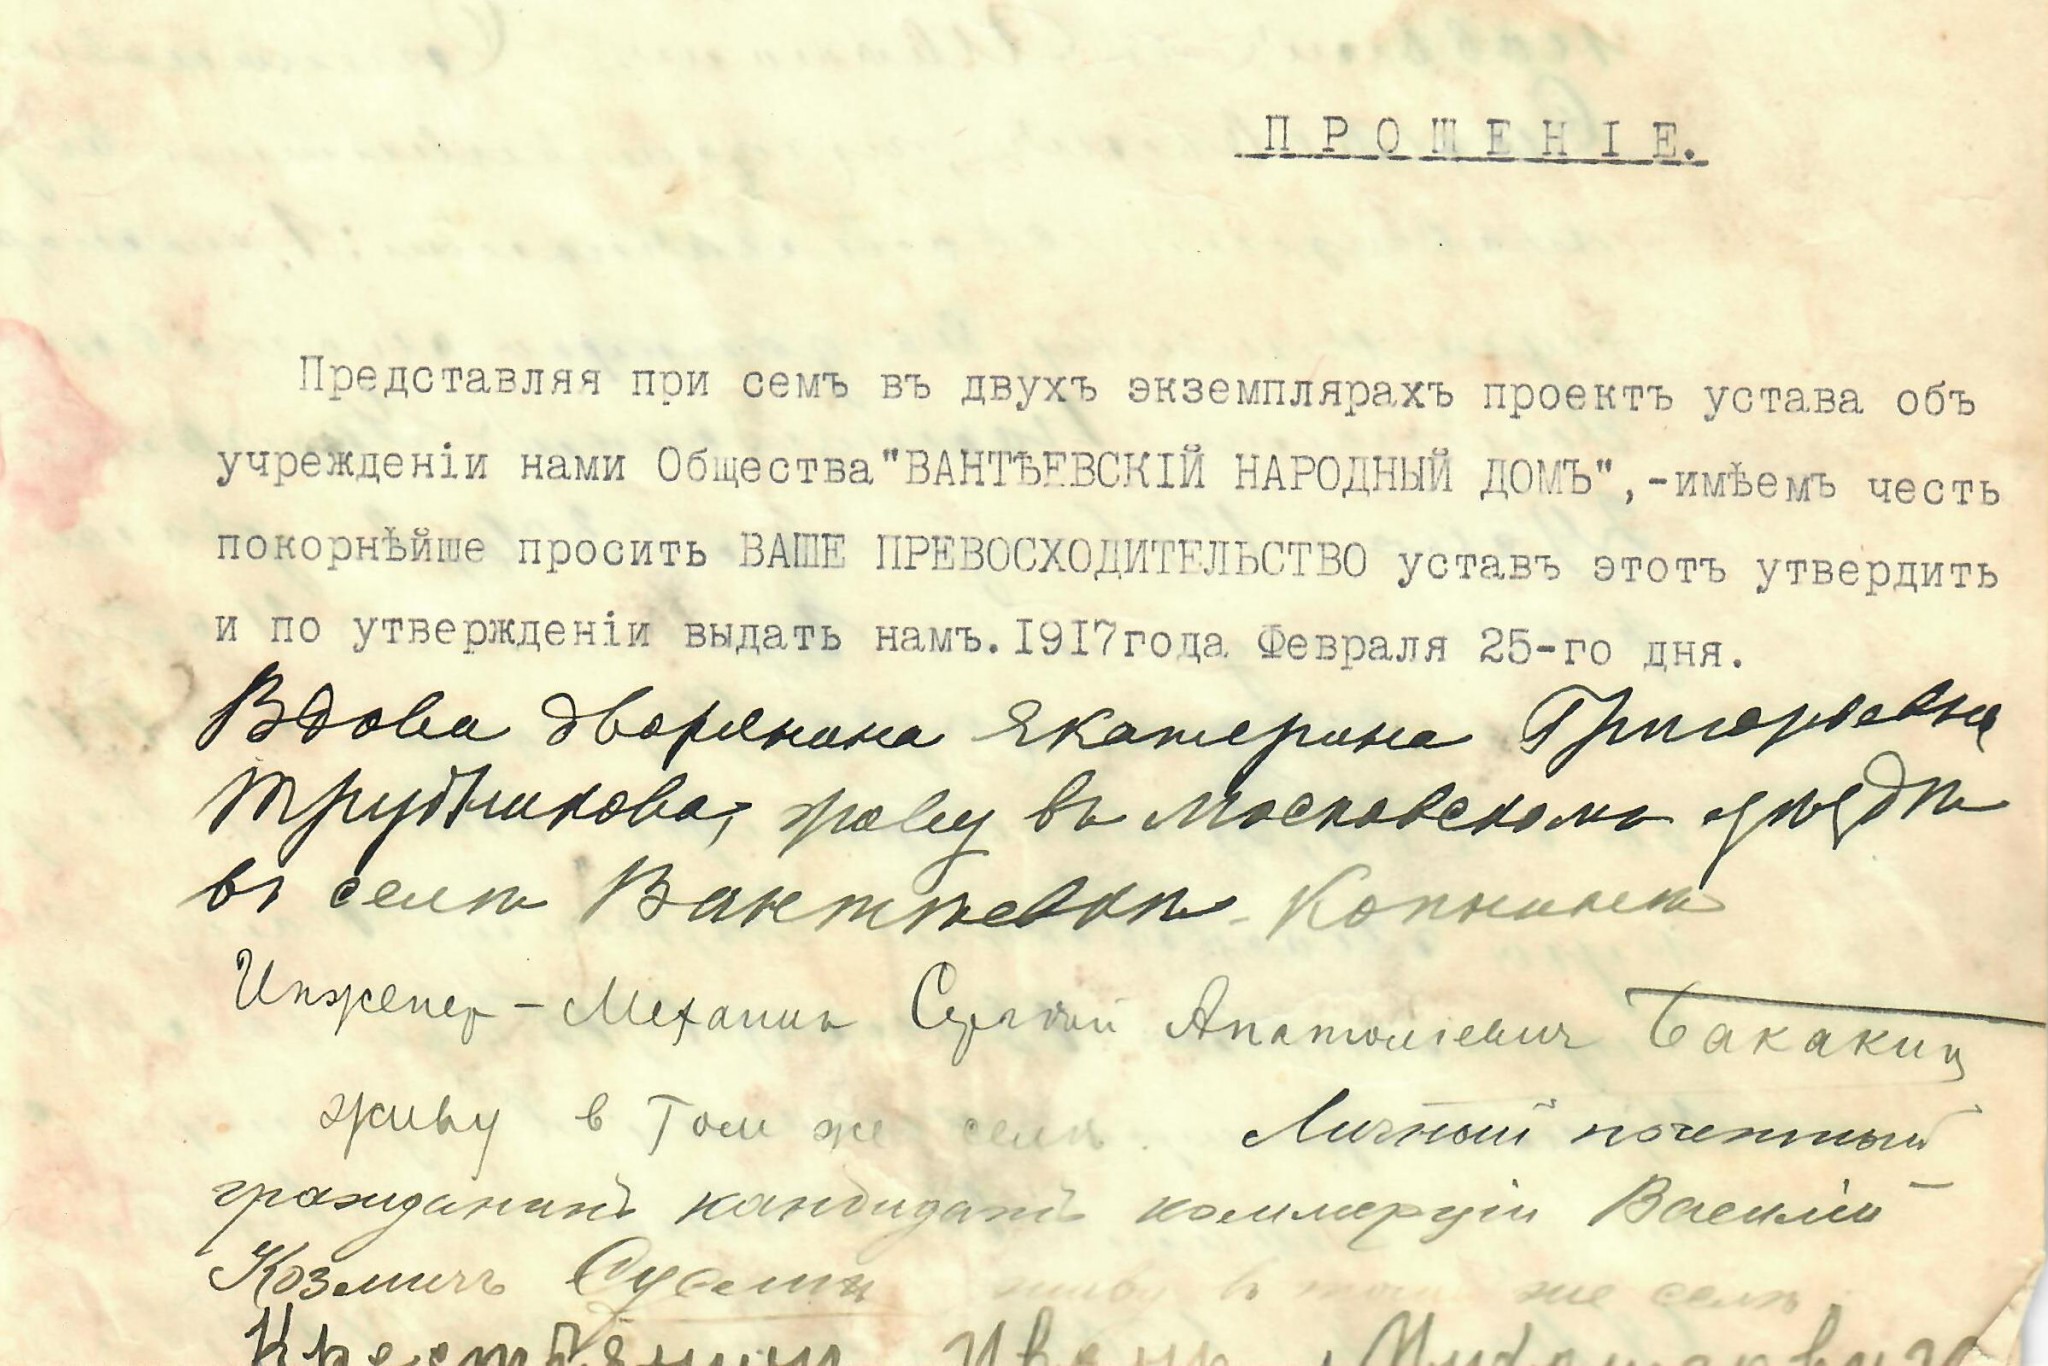 ПРОШЕНІЕ.
Представляя при семъ въ двухъ экземплярахъ проектъ устава объ
учрежденіи нами Общества "ВАНТѢЕВСКІЙ НАРОДНЫЙ ДОМЪ",-имѣемъ честь
покорнѣйше просить ВАШЕ ПРЕВОСХОДИТЕЛЬСТВО уставъ этотъ утвердить
и по утвержденіи выдать намъ. 1917 года Февраля 25-го дня.
Вдова дворянина Екатерина Григорьевна
Трубникова, живу въ Московскомъ уѣздѣ
въ селѣ Вантѣевкѣ - Копнинѣ
Инженер - Механик Сергѣй Анатолiевич Бакакин
живу в том же селѣ. Личный почетный
гражданинъ кандидатъ коммерціи Василій
Козмичъ живу въ томъ же селѣ.
Крестьянин Иванъ